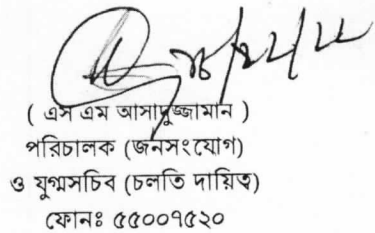 ( এস এম আসাদুজ্জামান )
পরিচালক (জনসংযোগ)
ও যুগ্মসচিব (চলতি দায়িত্ব)
ফোনঃ ৫৫০০৭৫২০